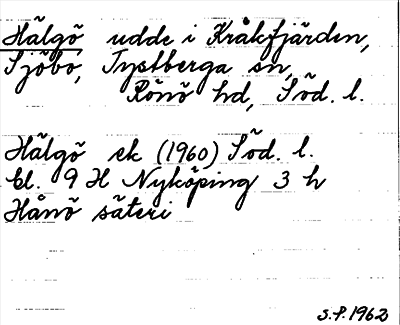 Hälgö udde i Kråkfjärden,
Sjöbo, Tystberga sn,
Rönö hd, Söd. l.
Hälgö ek (1960) Söd. l.
Bl. 9 H Nyköping 3 h
Hånö säteri
S.P. 1962